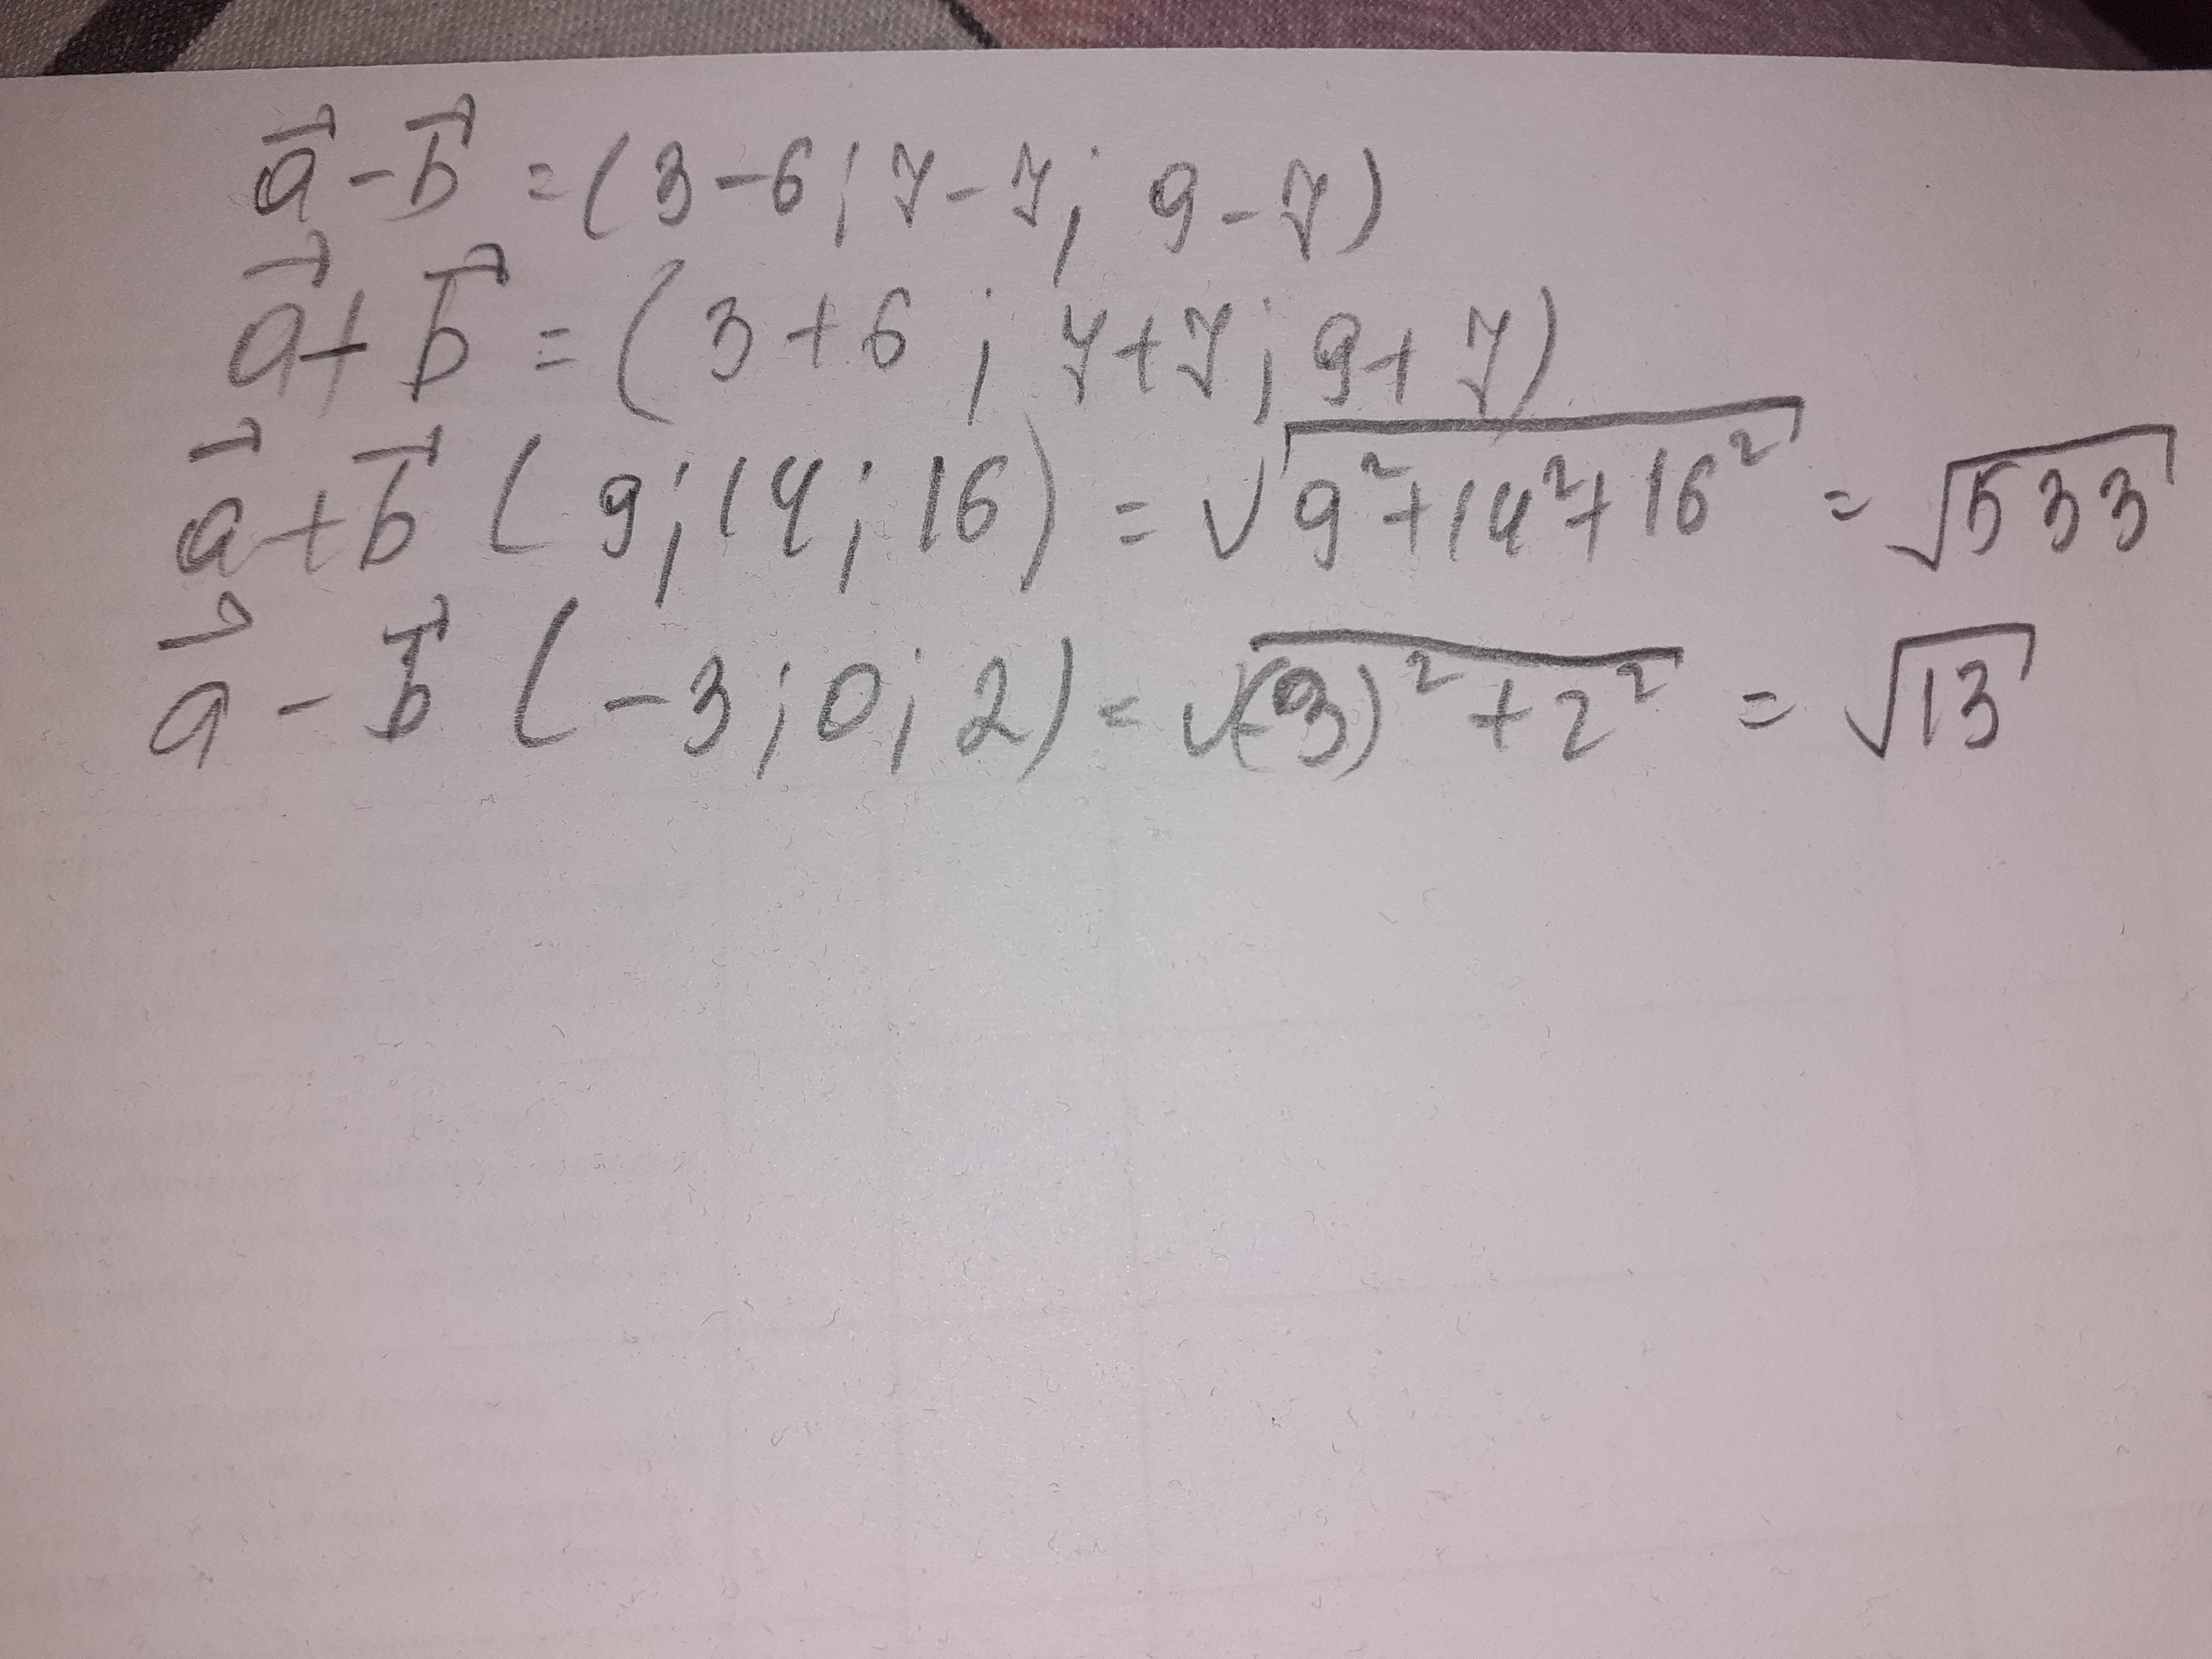 a⃗ - b⃗ = (3-6; 7-7; 9-7)
a⃗ + b⃗ = (3+6; 7+7; 9+7)
a⃗ + b⃗ (9; 14; 16) = √(9² + 14² + 16²) = √533
a⃗ - b⃗ (-3; 0; 2) = √((-3)² + 2²) = √13